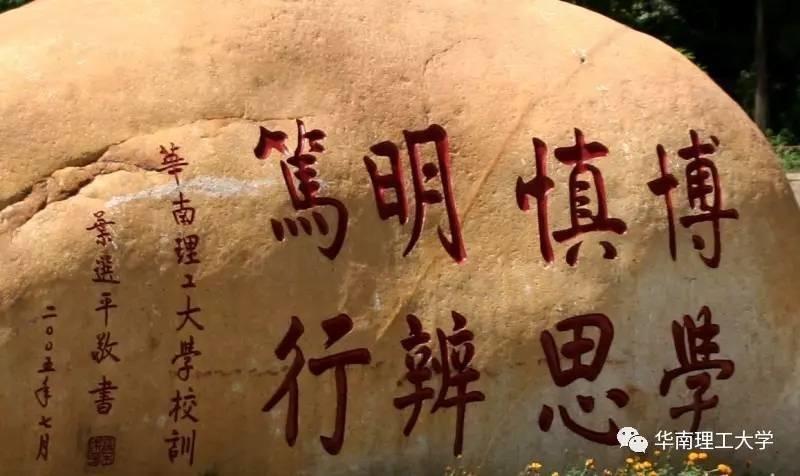 博學
慎思
明辨
篤行
華南理工大學校訓
葉選平敬書
二〇〇五年七月
华南理工大学